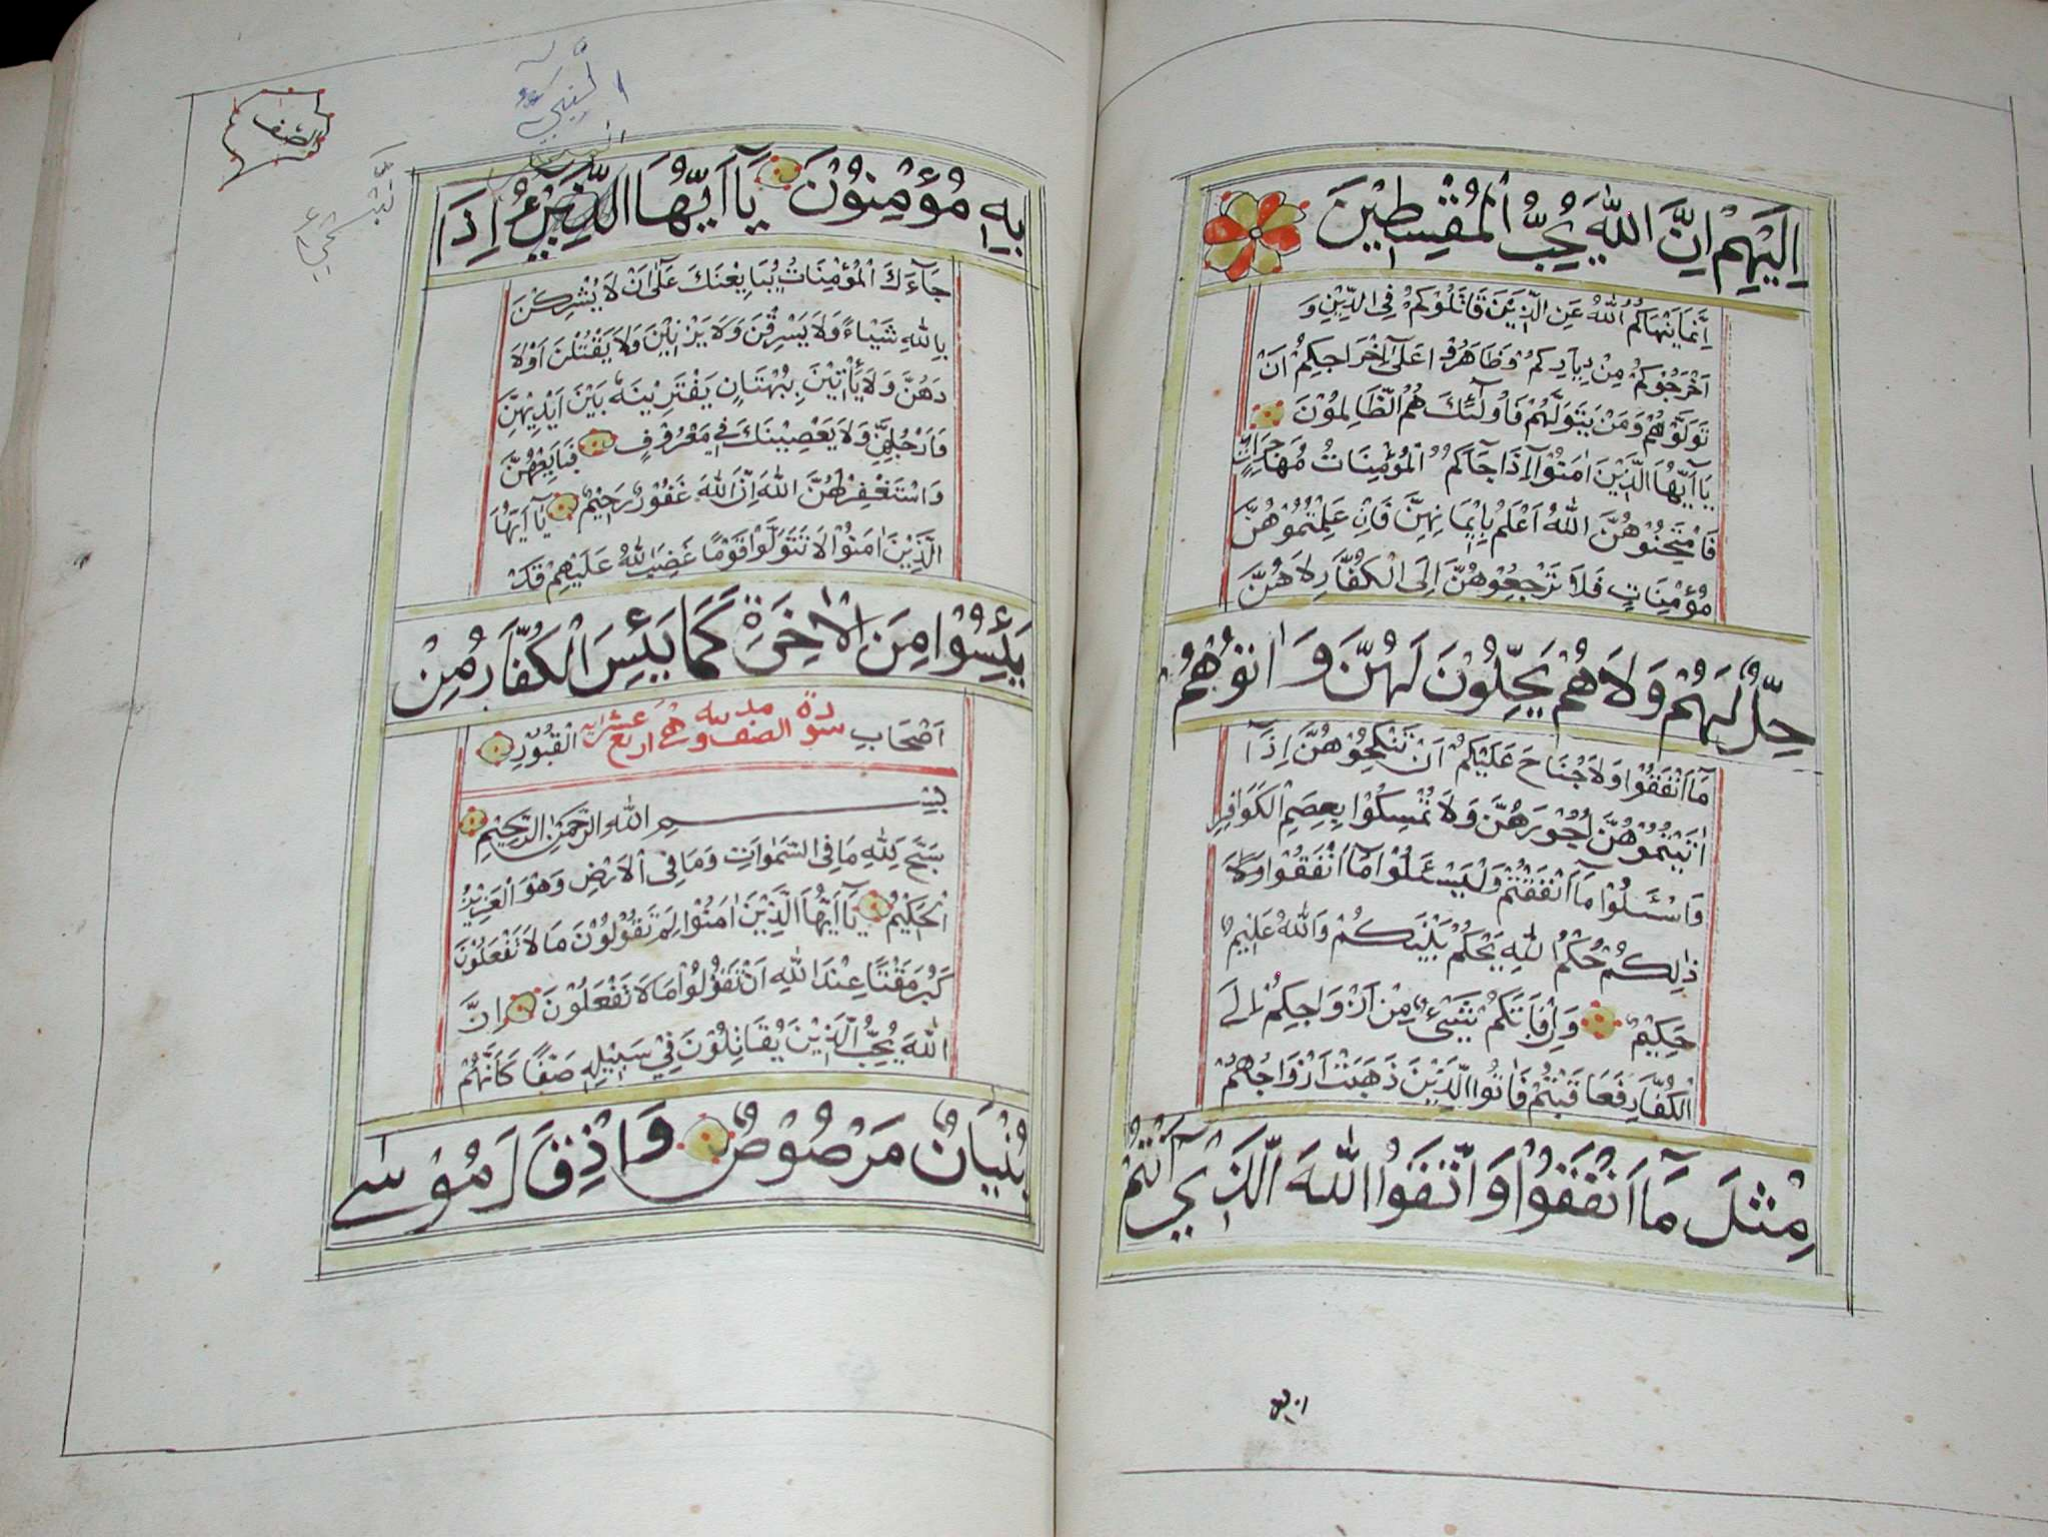 اِلَيْهِمْ اِنَّ اللّٰهَ يُحِبُّ الْمُقْسِطِيْنَ
اِنَّمَا يَنْهَاكُمُ اللّٰهُ عَنِ الَّذِيْنَ قَاتَلُوْكُمْ فِى الدِّيْنِ وَ
اَخْرَجُوْكُمْ مِنْ دِيَارِكُمْ وَظَاهَرُوْا عَلٰٓى اِخْرَاجِكُمْ اَنْ
تَوَلَّوْهُمْ وَمَنْ يَتَوَلَّهُمْ فَاُولٰٓئِكَ هُمُ الظَّالِمُوْنَ
يَآ اَيُّهَا الَّذِيْنَ اٰمَنُوْٓا اِذَا جَآءَكُمُ الْمُؤْمِنَاتُ مُهَاجِرَاتٍ
فَامْتَحِنُوْهُنَّ اللّٰهُ اَعْلَمُ بِاِيْمَانِهِنَّ فَاِنْ عَلِمْتُمُوْهُنَّ
مُؤْمِنَاتٍ فَلَا تَرْجِعُوْهُنَّ اِلَى الْكُفَّارِ لَا هُنَّ
حِلٌّ لَهُمْ وَلَا هُمْ يَحِلُّوْنَ لَهُنَّ وَاٰتُوْهُمْ
مَآ اَنْفَقُوْا وَلَا جُنَاحَ عَلَيْكُمْ اَنْ تَنْكِحُوْهُنَّ اِذَآ
اٰتَيْتُمُوْهُنَّ اُجُوْرَهُنَّ وَلَا تُمْسِكُوْا بِعِصَمِ الْكَوَافِرِ
وَاسْئَلُوْا مَآ اَنْفَقْتُمْ وَلْيَسْئَلُوْا مَآ اَنْفَقُوْا
ذٰلِكُمْ حُكْمُ اللّٰهِ يَحْكُمُ بَيْنَكُمْ وَاللّٰهُ عَلِيْمٌ
حَكِيْمٌ وَاِنْ فَاتَكُمْ شَىْءٌ مِنْ اَزْوَاجِكُمْ اِلَى
الْكُفَّارِ فَعَاقَبْتُمْ فَاٰتُوا الَّذِيْنَ ذَهَبَتْ اَزْوَاجُهُمْ
مِثْلَ مَآ اَنْفَقُوْا وَاتَّقُوا اللّٰهَ الَّذِيْ اَنْتُمْ
الصف
النبي
بِهِ مُؤْمِنُوْنَ يَآ اَيُّهَا النَّبِيُّ اِذَا
جَآءَكَ الْمُؤْمِنَاتُ يُبَايِعْنَكَ عَلٰٓى اَنْ لَا يُشْرِكْنَ
بِاللّٰهِ شَيْـًٔا وَلَا يَسْرِقْنَ وَلَا يَزْنِيْنَ وَلَا يَقْتُلْنَ اَوْلَا
دَهُنَّ وَلَا يَأْتِيْنَ بِبُهْتَانٍ يَفْتَرِيْنَهُ بَيْنَ اَيْدِيْهِنَّ
وَاَرْجُلِهِنَّ وَلَا يَعْصِيْنَكَ فِى مَعْرُوْفٍ فَبَايِعْهُنَّ
وَاسْتَغْفِرْ لَهُنَّ اللّٰهَ اِنَّ اللّٰهَ غَفُوْرٌ رَحِيْمٌ يَآ اَيُّهَا
الَّذِيْنَ اٰمَنُوْا لَا تَتَوَلَّوْا قَوْمًا غَضِبَ اللّٰهُ عَلَيْهِمْ قَدْ
يَئِسُوْا مِنَ الْاٰخِرَةِ كَمَا يَئِسَ الْكُفَّارُ مِنْ
اَصْحَابِ الْقُبُوْرِ
سورة الصف مدنيه وهى اربع عشر اية
بِسْمِ اللّٰهِ الرَّحْمٰنِ الرَّحِيْمِ
سَبَّحَ لِلّٰهِ مَا فِى السَّمٰوَاتِ وَمَا فِى الْاَرْضِ وَهُوَ الْعَزِيْزُ
الْحَكِيْمُ يَآ اَيُّهَا الَّذِيْنَ اٰمَنُوْا لِمَ تَقُوْلُوْنَ مَا لَا تَفْعَلُوْنَ
كَبُرَ مَقْتًا عِنْدَ اللّٰهِ اَنْ تَقُوْلُوْا مَا لَا تَفْعَلُوْنَ اِنَّ
اللّٰهَ يُحِبُّ الَّذِيْنَ يُقَاتِلُوْنَ فِيْ سَبِيْلِهِ صَفًّا كَاَنَّهُمْ
بُنْيَانٌ مَرْصُوْصٌ وَاِذْ قَالَ مُوْسٰى